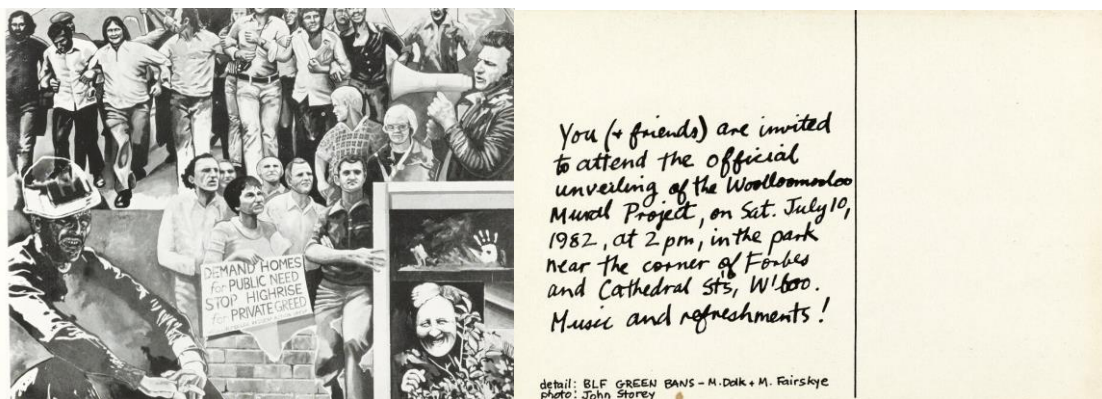 DEMAND HOMES
for PUBLIC NEED
STOP HIGHRISE
for PRIVATE GREED
You (+ friends) are invited
to attend the official
unveiling of the Woolloomooloo
Mural Project, on Sat. July 10,
1982, at 2 pm, in the park
near the corner of Forbes
and Cathedral Sts, W'loo.
Music and refreshments!
detail: BLF GREEN BANS - M. Dolk + M. Fairskye
photo: John Storey